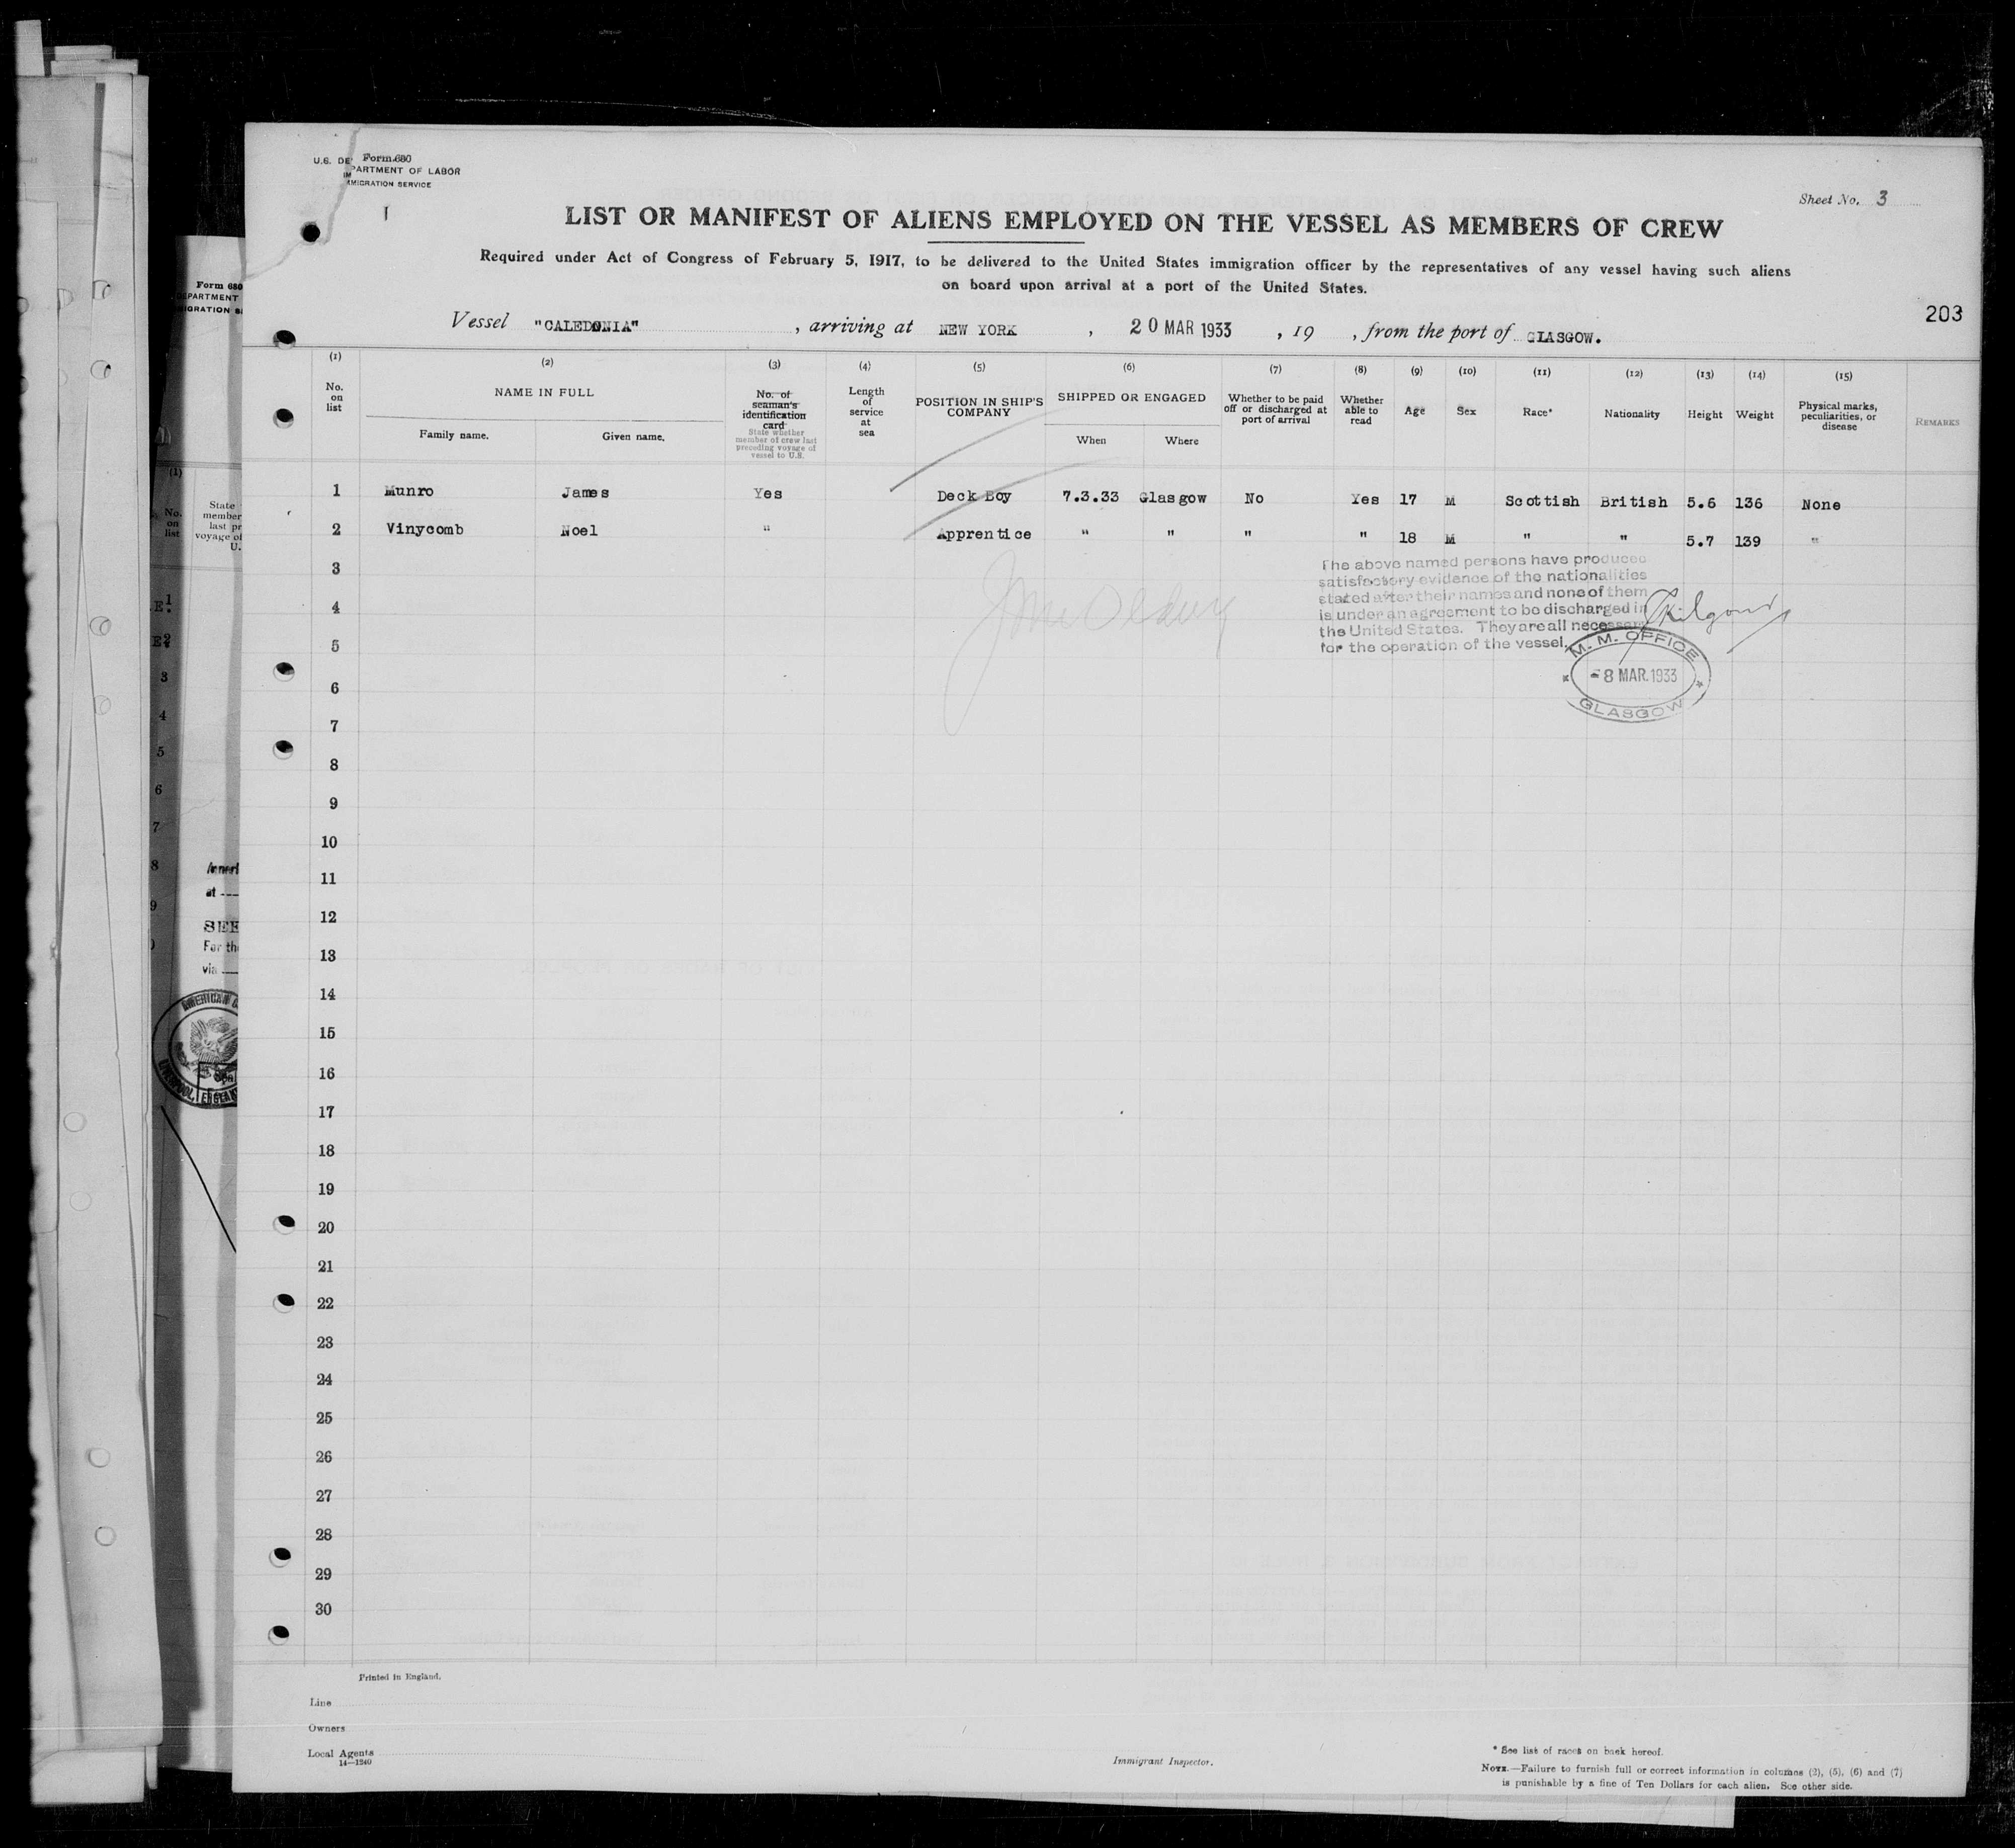 Form 680
U.S. DEPARTMENT OF LABOR
IMMIGRATION SERVICE
Sheet No. 3
LIST OR MANIFEST OF ALIENS EMPLOYED ON THE VESSEL AS MEMBERS OF CREW
Required under Act of Congress of February 5, 1917, to be delivered to the United States immigration officer by the representatives of any vessel having such aliens
on board upon arrival at a port of the United States.
203
Vessel "CALEDONIA" , arriving at NEW YORK , 20 MAR 1933 , 19 , from the port of GLASGOW.
(1) (2) (3) (4) (5) (6) (7) (8) (9) (10) (11) (12) (13) (14) (15)
No. on list
NAME IN FULL
Family name. Given name.
No. of seaman's identification card
State whether member of crew last preceding voyage of vessel to U.S.
Length of service at sea
POSITION IN SHIP'S COMPANY
SHIPPED OR ENGAGED
When Where
Whether to be paid off or discharged at port of arrival
Whether able to read
Age
Sex
Race*
Nationality
Height
Weight
Physical marks, peculiarities, or disease
REMARKS
1 Munro James Yes Deck Boy 7.3.33 Glasgow No Yes 17 M Scottish British 5.6 136 None
2 Vinycomb Noel " Apprentice " " " " 18 M " " 5.7 139 "
The above named persons have produced
satisfactory evidence of the nationalities
stated after their names and none of them
is under an agreement to be discharged in
the United States. They are all necessary
for the operation of the vessel.
M. M. OFFICE
-8 MAR. 1933
GLASGOW
3
4
5
6
7
8
9
10
11
12
13
14
15
16
17
18
19
20
21
22
23
24
25
26
27
28
29
30
Printed in England.
Line
Owners
Local Agents
14—1240
Immigrant Inspector.
* See list of races on back hereof.
NOTE.—Failure to furnish full or correct information in columns (2), (5), (6) and (7)
is punishable by a fine of Ten Dollars for each alien. See other side.
Form 680
(1)
No. on list
State
1
2
3
4
5
6
7
8
9
at
For
via
AMERICAN
LIVERPOOL, ENGLAND